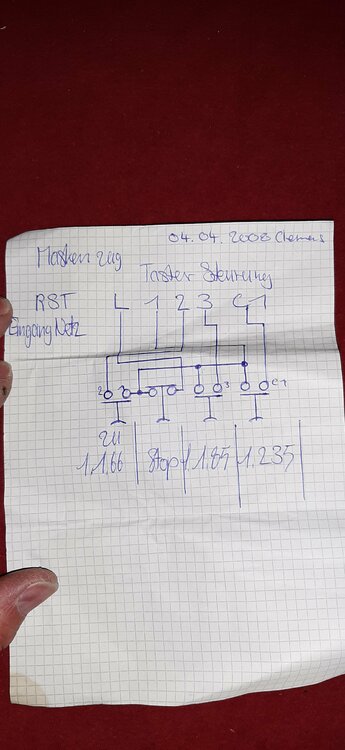 04.04.2008 Clemens
Masken zug
Taster Steurung
RST L 1 2 3 C1
Eingang Netz
2 3 C1
zu
1,1.66 Stop 1.1.85 1.235